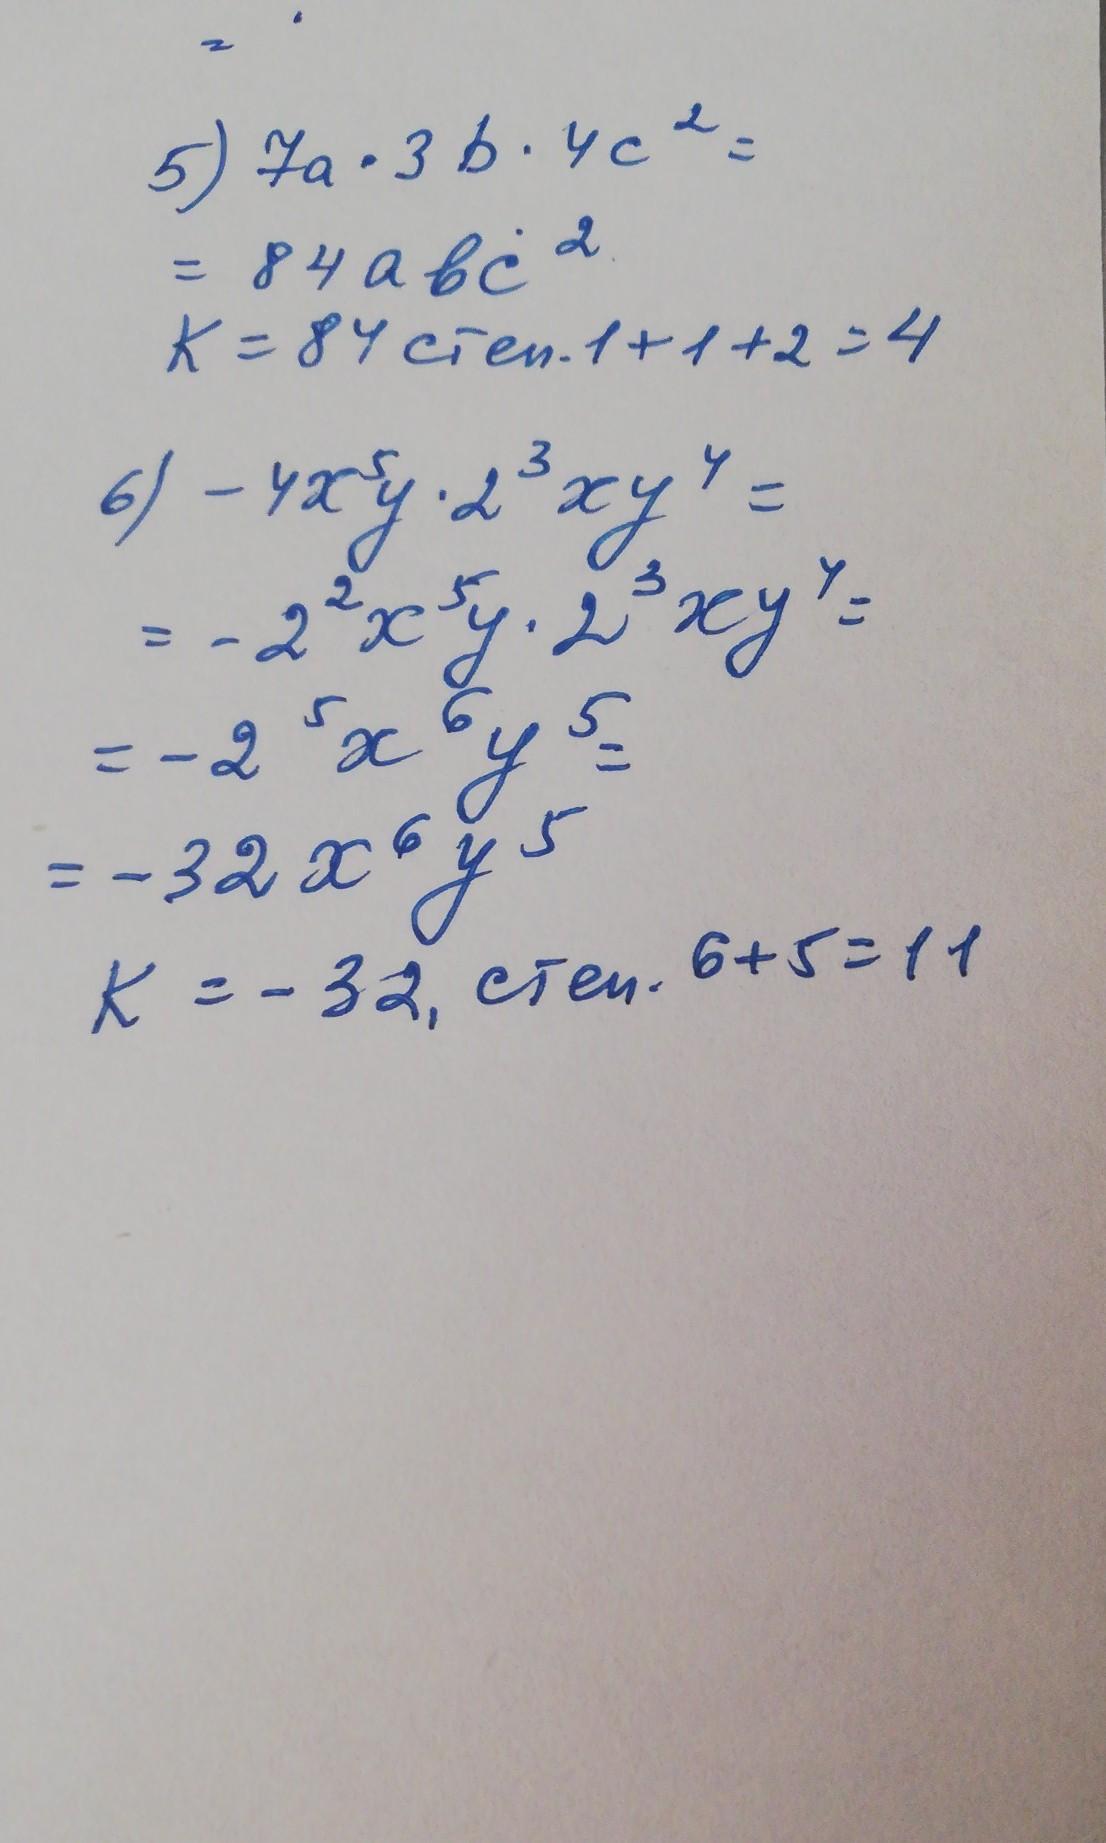 =
5) 7a · 3b · 4c² =
= 84авс²
К = 84 степ. 1+1+2=4
6) -4x⁵y · 2³xy⁴ =
= -2²x⁵y · 2³xy⁴ =
= -2⁵x⁶y⁵ =
= -32x⁶y⁵
К = -32, степ. 6+5=11